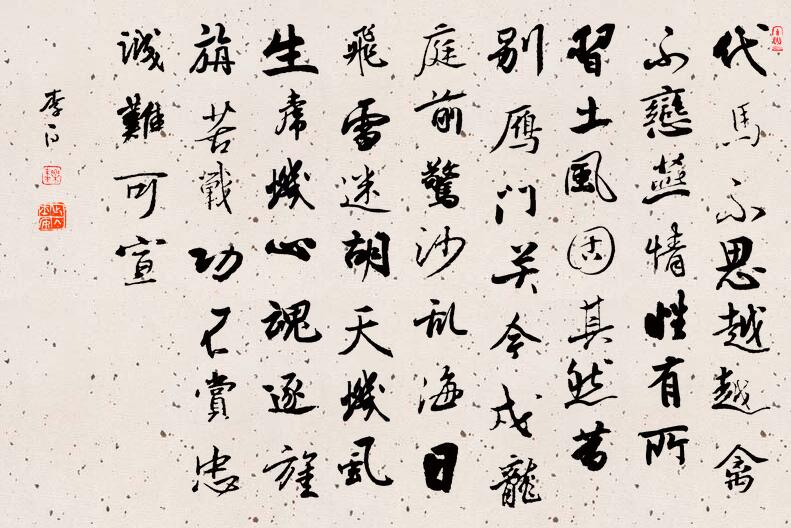 代馬不思越越禽
不戀燕情性有所
習土風固其然昔
别鴈门关今戍龍
庭前驚沙乱海日
飛雪迷胡天蟣虱
生虎蟣心魂逐旌
旃苦戰功不賞忠
誠難可宣
李白